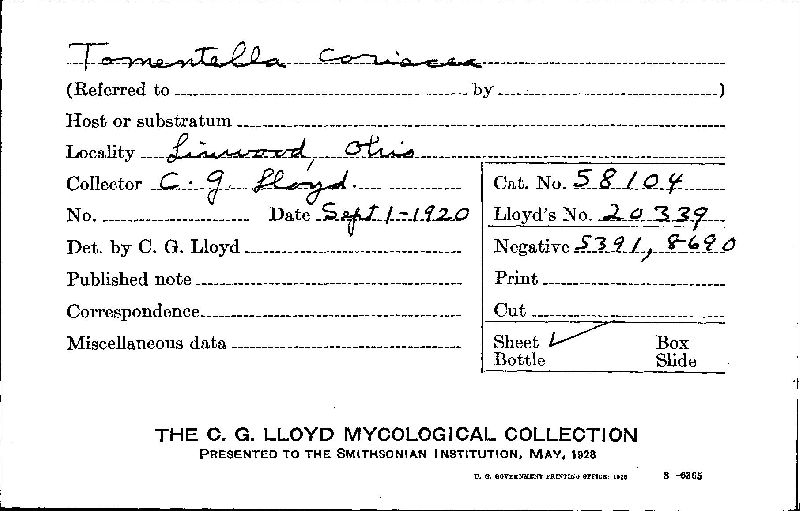 Tomentella coriacea
(Referred to by )
Host or substratum
Locality Linwood, Ohio
Collector C. G. Lloyd.
No. Date Sept 1-1920
Det. by C. G. Lloyd
Published note
Correspondence
Miscellaneous data
Cat. No. 58104
Lloyd's No. 20339
Negative 5391, 8690
Print
Cut
Sheet ✓ Box
Bottle Slide
THE C. G. LLOYD MYCOLOGICAL COLLECTION
PRESENTED TO THE SMITHSONIAN INSTITUTION, MAY, 1928
U. S. GOVERNMENT PRINTING OFFICE: 1928 8-6365